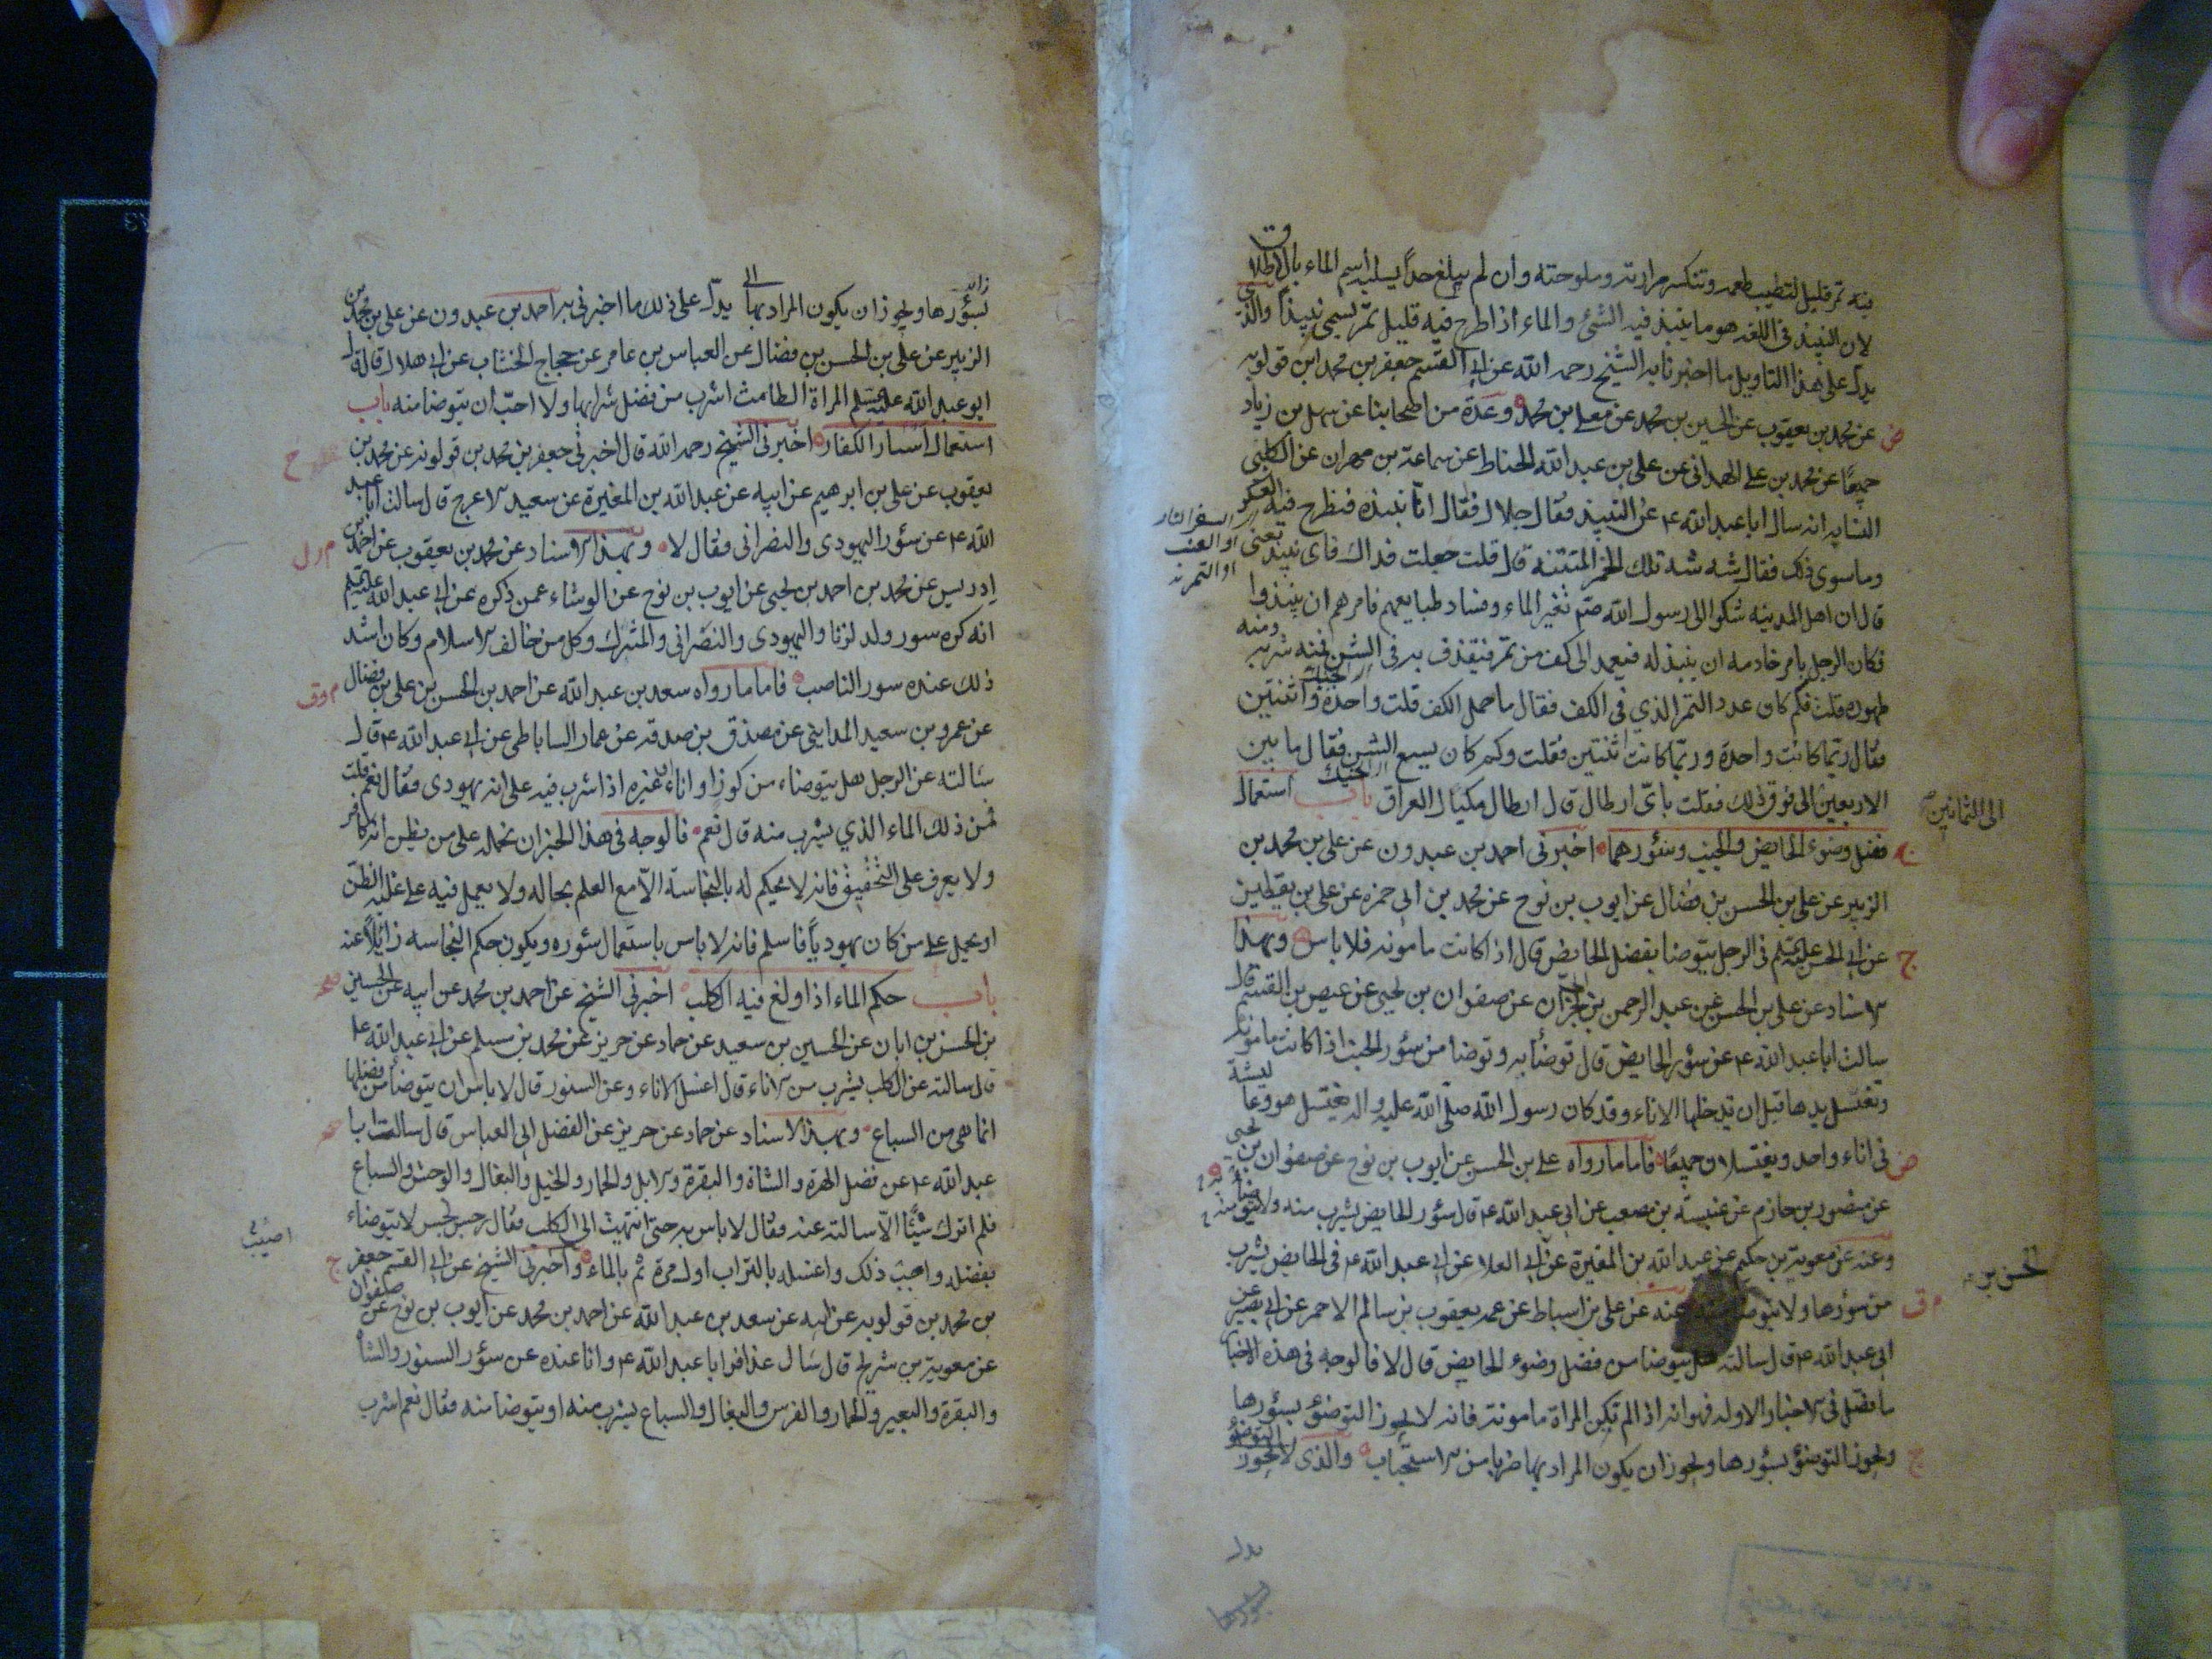 فيه تمر قليل لتطيب طعمه وتنكسر مرارته وملوحته وان لم يبلغ حداً يسلبه اسم الماء بالاطلاق
لان النبيذ في اللغه هو ما ينبذ فيه الشئ والماء اذا طرح فيه قليل تمر يسمى نبيذاً والذي
يدل على هذا التاويل ما اخبرنا به الشيخ رحمه الله عن ابي القسم جعفر بن محمد ابن قولويه
عن محمد بن يعقوب عن الحسين بن محمد عن معلى بن محمد وعدة من اصحابنا عن سهل بن زياد
جميعًا عن محمد بن علي الهمداني عن علي بن عبد الله الحناط عن سماعة بن مهران عن الكلبي
النسابه انه سال ابا عبد الله ع عن النبيذ فقال حلال فقال انا ننبذه فنطرح فيه العكر
وما سوى ذلك فقال شه شه تلك الخمر المنتنه قال قلت جعلت فداك فاي نبيذ تعني
قال ان اهل المدينه شكوا الى رسول الله صم تغير الماء وفساد طبايعهم فامرهم ان ينبذوا
فكان الرجل يامر خادمه ان ينبذ له فيعمد الى كف من تمر فيقذف به في الشن فمنه شربه ومنه
طهوره قلت فكم كان عدد التمر الذي في الكف فقال ما حمل الكف قلت واحدة واثنتين
فقال ربما كانت واحدة وربما كانت اثنتين فقلت وكم كان يسع الشن فقال ما بين
الاربعين الى فوق ذلك فقلت باي ارطال قال ارطال مكيال العراق باب استعمال
الى الثمانين
فضل وضوء الحايض والجنب وسؤرهما اخبرني احمد بن عبدون عن علي بن محمد بن
الزبير عن علي بن الحسن بن فضال عن ايوب بن نوح عن محمد بن ابي حمزه عن علي بن يقطين
عن ابي الحسن عليه السلم في الرجل يتوضا بفضل الحايض قال اذا كانت مامونه فلا باس وبهذا
الاسناد عن علي بن الحسن عن عبد الرحمن بن ابي نجران عن صفوان بن يحيى عن عيص بن القسم قال
سالت ابا عبد الله ع عن سؤر الحايض قال توضأ به وتوضا من سؤر الجنب اذا كانت مامونه
وتغتسل يدها قبل ان تدخلها الاناء وقد كان رسول الله صلى الله عليه واله يغتسل هو وعايشة
في اناء واحد ويغتسلان جميعًا فاما ما رواه علي بن الحسن عن ايوب بن نوح عن صفوان بن يحيى
عن منصور بن حازم عن عنبسة بن مصعب عن ابي عبد الله ع قال سؤر الحايض يشرب منه ولا يتوضا منه
وعنه عن معوية بن حكيم عن عبد الله بن المغيرة عن الحسين بن ابي العلا عن ابي عبد الله ع في الحايض يشرب
الحسن بن
من سؤرها ولا يتوضا منه وعنه عن علي بن اسباط عن عمه يعقوب بن سالم الاحمر عن ابي بصير عن
ابي عبد الله ع قال سالته هل يتوضا من فضل وضوء الحايض قال لا فالوجه في هذه الاخبار
ما فصل في الاخبار الاوله فهو انه اذا لم تكن المراة مامونة فانه لا يجوز التوضؤ بسؤرها
ويجوز التوضؤ بسؤرها ويجوز ان يكون المراد بها ضربا من الاستحباب والذي لا يجوز التوضؤ
بسؤرها ويجوز ان يكون المراد بها يدل على ذلك ما اخبرني به احمد بن عبدون عن علي بن محمد بن
الزبير عن علي بن الحسن بن فضال عن العباس بن عامر عن حجاج الخشاب عن ابي هلال قال قال
ابو عبد الله عليه السلم المراة الطامث اشرب من فضل شرابها ولا احب ان يتوضا منه باب
استعمال اسار الكفار اخبرني الشيخ رحمه الله قال اخبرني جعفر بن محمد بن قولويه عن محمد بن
يعقوب عن علي بن ابرهيم عن ابيه عن عبد الله بن المغيرة عن سعيد الاعرج قال سالت ابا عبد
الله ع عن سؤر اليهودي والنصراني فقال لا وبهذا الاسناد عن محمد بن يعقوب عن احمد بن
ادريس عن محمد بن احمد بن يحيى عن ايوب بن نوح عن الوشاء عمن ذكره عن ابي عبد الله عليه السلم
انه كره سور ولد لزنا واليهودي والنصراني والمشرك وكل من خالف الاسلام وكان اشد
ذلك عنده سور الناصب فاما ما رواه سعد بن عبد الله عن احمد بن الحسن بن علي بن فضال
عن عمرو بن سعيد المدايني عن مصدق بن صدقه عن عمار الساباطي عن ابي عبد الله ع قال
سالته عن الرجل هل يتوضاء من كوز او اناء غيره اذا شرب فيه على انه يهودي فقال نعم قلت
فمن ذلك الماء الذي يشرب منه قال نعم فالوجه في هذا الخبر ان نحمله على من يظن انه كافر
ولا يعرف على التحقيق فانه لا يحكم له بالنجاسة الا مع العلم بحاله ولا يعمل فيه على غلبة الظن
او يحمل على من كان يهوديًا فاسلم فانه لا باس باستعمال سئوره ويكون حكم النجاسه زايلاً عنه
باب حكم الماء اذا ولغ فيه الكلب اخبرني الشيخ عن احمد بن محمد عن ابيه عن الحسين
بن الحسن بن ابان عن الحسين بن سعيد عن حماد عن حريز عن محمد بن مسلم عن ابي عبد الله ع
قال سالته عن الكلب يشرب من الاناء قال اغسل الاناء وعن السنور قال لا باس ان يتوضأ من فضلها
انما هي من السباع وبهذا الاسناد عن حماد عن حريز عن الفضل ابي العباس قال سالت ابا
عبد الله ع عن فضل الهرة والشاة والبقرة والابل والحمار والخيل والبغال والوحش والسباع
فلم اترك شيئًا الا سالته عنه فقال لا باس به حتى انتهيت الى الكلب فقال رجس نجس لا تتوضاء
بفضله واصبب ذلك واغسله بالتراب اول مرة ثم بالماء واخبرني الشيخ عن ابي القسم جعفر
بن محمد بن قولويه عن ابيه عن سعد بن عبد الله عن احمد بن محمد عن ايوب بن نوح عن صفوان
عن معوية بن شريح قال سال عذافر ابا عبد الله ع وانا عنده عن سؤر السنور والشاة
والبقرة والبعير والحمار والفرس والبغال والسباع يشرب منه او يتوضا منه فقال نعم اشرب